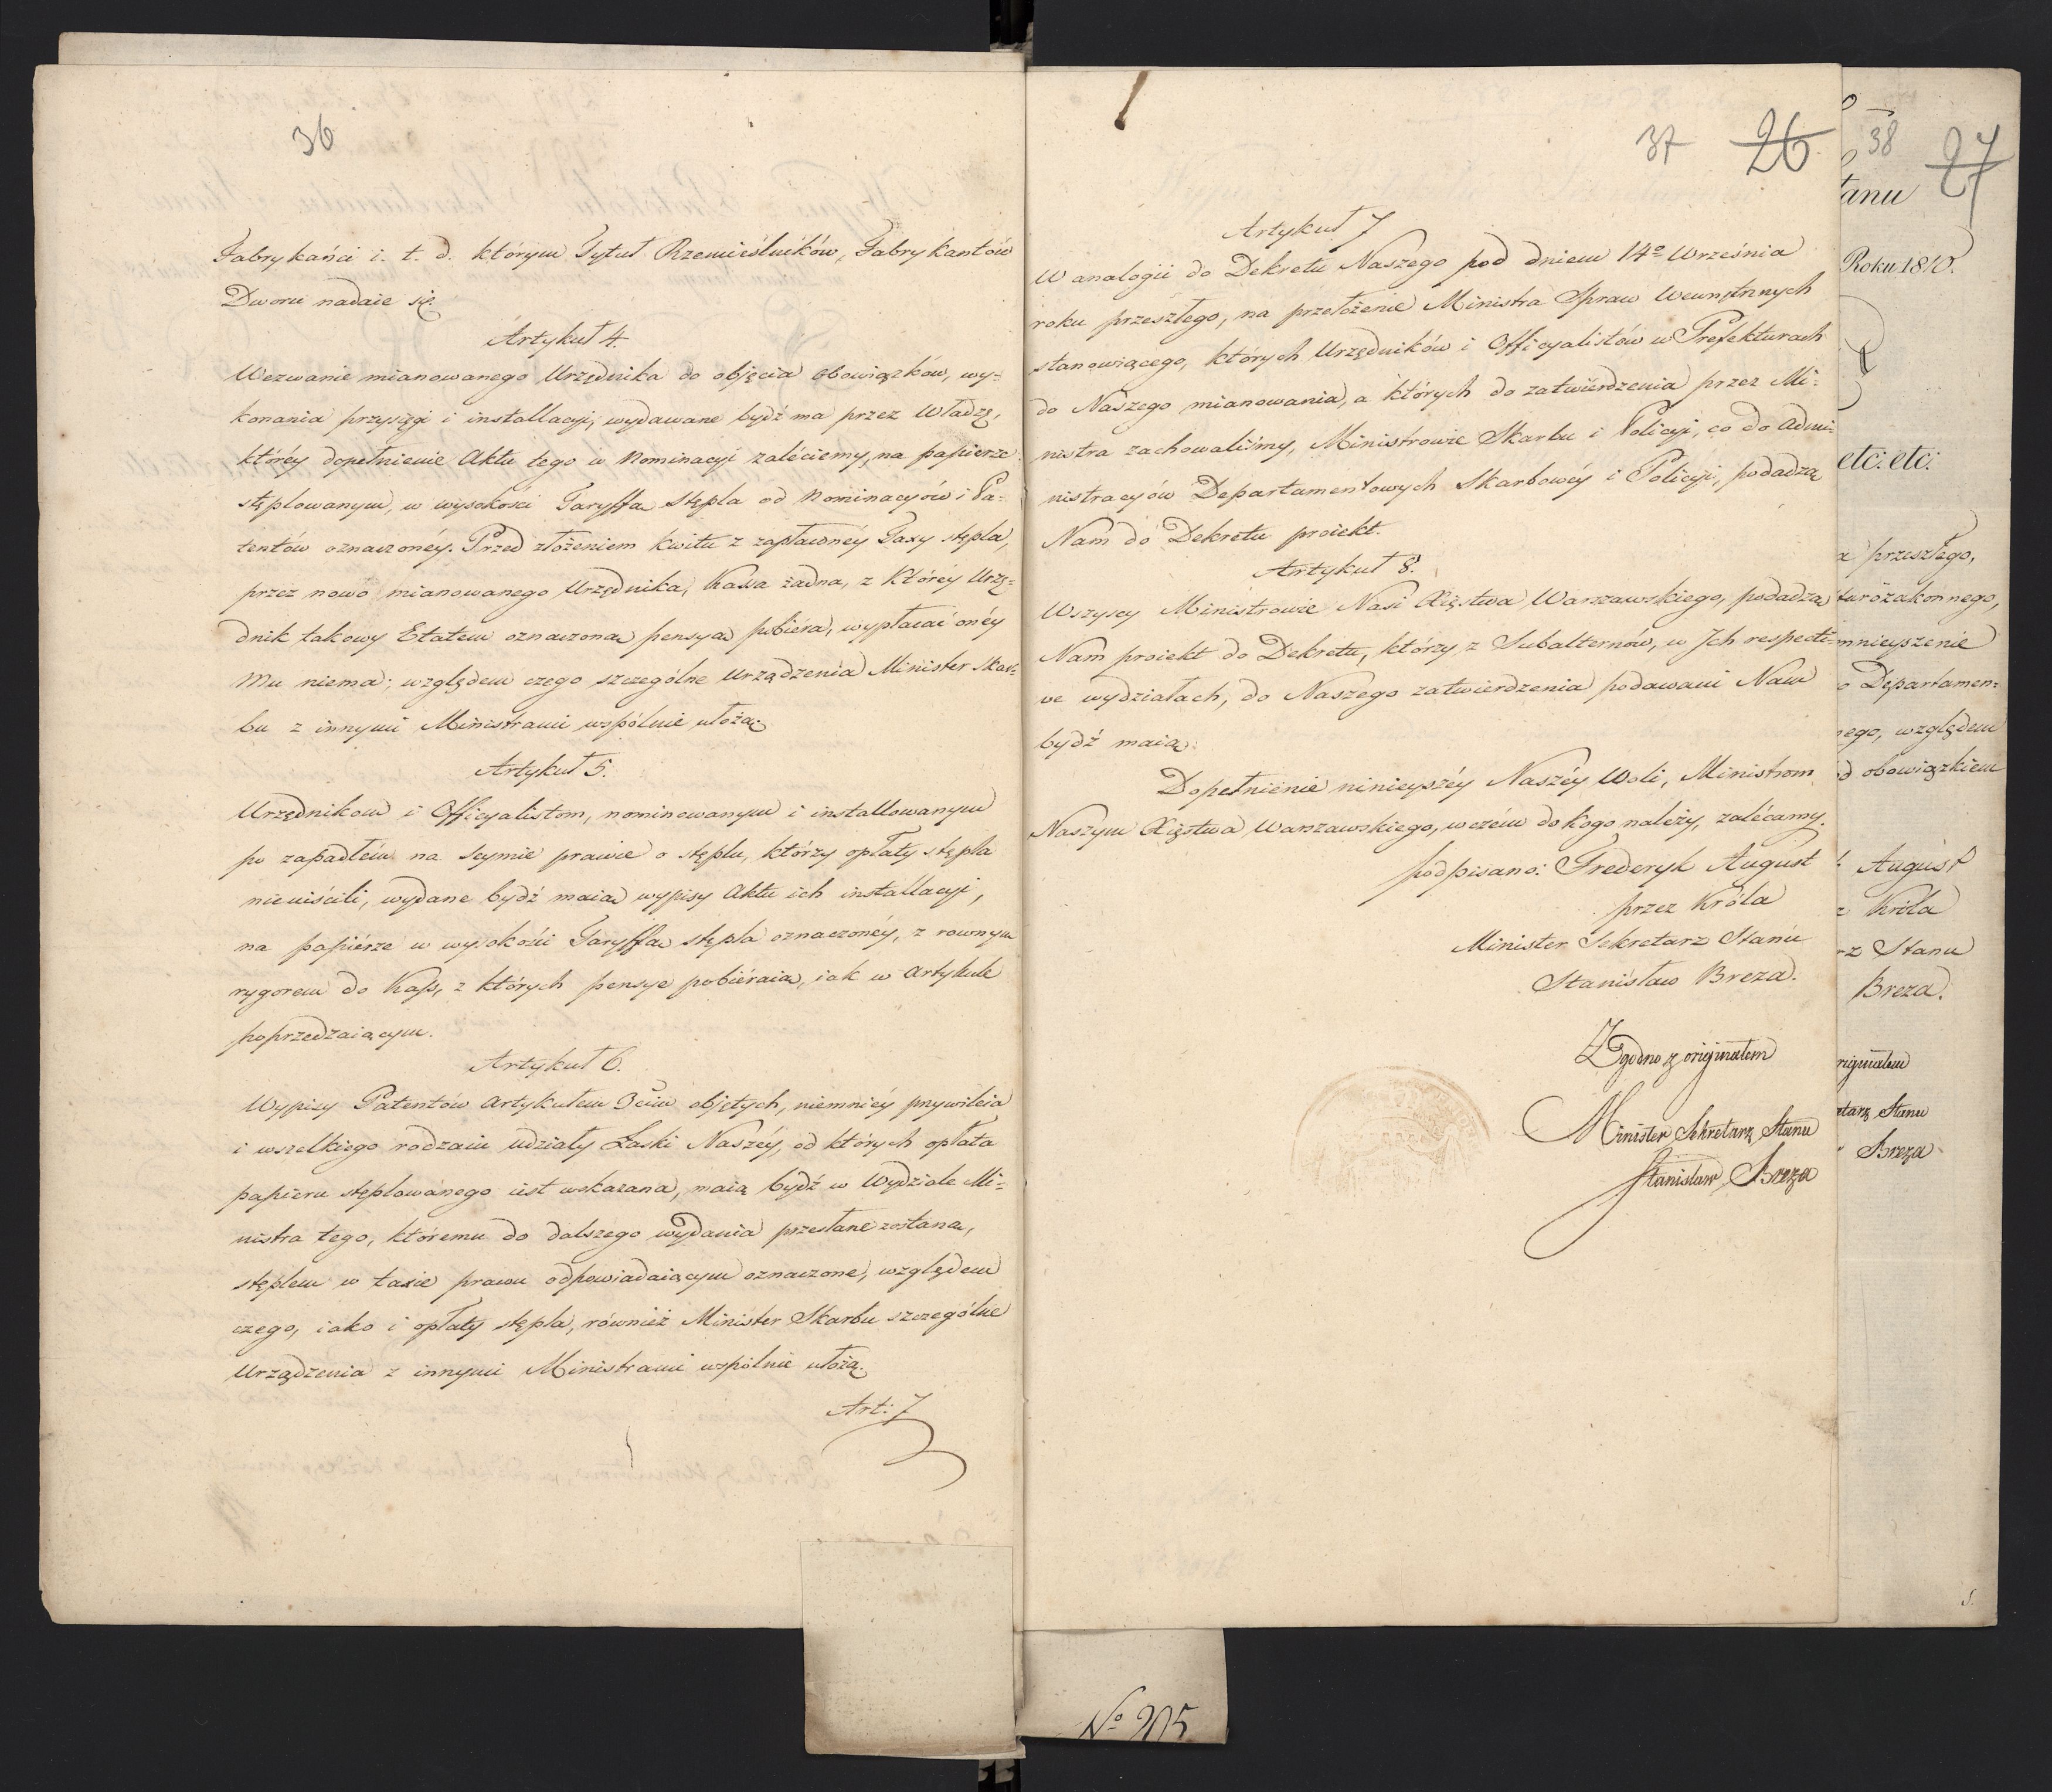 36
Fabrykańci i. t. d. którym Tytuł Rzemieślników, Fabrykantów
Dworu nadaie się.
Artykuł 4.
Wezwanie mianowanego Urzędnika do objęcia obowiązków, wy=
konania przysięgi i installacyi, wydawane bydź ma przez Władzę,
któréy dopełnienie Aktu tego w Nominacyi zaléciemy, na papierze
stęplowanym, w wysokości Taryffą stępla od Nominacyów i Pa=
tentów oznaczonéy. Przed złożeniem kwitu z zapłaconéy Taxy stępla,
przez nowo mianowanego Urzędnika, Kassa żadna, z któréy Urzę=
dnik takowy Etatem oznaczoną pensyą pobiéra, wypłacać onéy
Mu niema; względem czego szczególne Urządzenia Minister Skar=
bu z innymi Ministrami wspólnie ułożą.
Artykuł 5.
Urzędnikom i Officyalistom, nominowanym i installowanym
po zapadłém na Seymie prawie o stęplu, którzy opłaty stępla
nieuiścili, wydane bydź maią wypisy Aktu ich installacyi,
na papiérze w wysokości Taryffą stępla oznaczonéy, z rownym
rygorem do Kass, z których pensye pobiéraią, iak w Artykule
poprzedzaiącym.
Artykuł 6.
Wypisy Patentów Artykułem 3cim objętych, niemniéy przywileia
i wszelkiego rodzaiu udziały Łaski Naszéy, od których opłata
papieru stęplowanego iest wskazana, maią bydź w Wydziale Mi=
nistra tego, któremu do dalszego wydania przesłane zostaną,
stęplem w taxie prawu odpowiadaiącym oznaczone, względem
czego, iako i opłaty stępla, również Minister Skarbu szczególne
Urządzenia z innymi Ministrami wspólnie ułożą.
Art: 7
37 26
Artykuł 7
W analogii do Dekretu Naszego pod dniem 14º Września
roku przeszłego, na przełożenie Ministra Spraw Wewnętrznych
stanowiącego, których Urzędników i Officyalistów w Prefekturach
do Naszego mianowania, a których do zatwierdzenia przez Mi=
nistra zachowaliśmy, Ministrowie Skarbu i Policyi, co do Admi=
nistracyów Departamentowych Skarbowéy i Policyi, podadzą
Nam do Dekretu proiekt.
Artykuł 8.
Wszyscy Ministrowie Nasi Xięstwa Warszawskiego, podadzą
Nam proiekt do Dekretu, którzy z Subalternów, w Ich respecti=
ve wydziałach, do Naszego zatwierdzenia podawani Nam
bydź maią.
Dopełnienie ninieyszéy Naszéy Woli, Ministrom
Naszym Xięstwa Warszawskiego, w czém do kogo należy, zalécamy.
podpisano: Frederyk August
przez Króla
Minister Sekretarz Stanu
Stanisław Breza.
Zgodno z originałem
Minister Sekretarz Stanu
Stanisław Breza
38 27
tanu
Roku 1810.
etc: etc:
przeszłego,
tarozakonnego,
mnieyszenie
o Departamen=
ego, względem
d obowiązkiem
August
Króla
rz Stanu
Breza.
riginałem
etarz Stanu
Breza
Nº 205